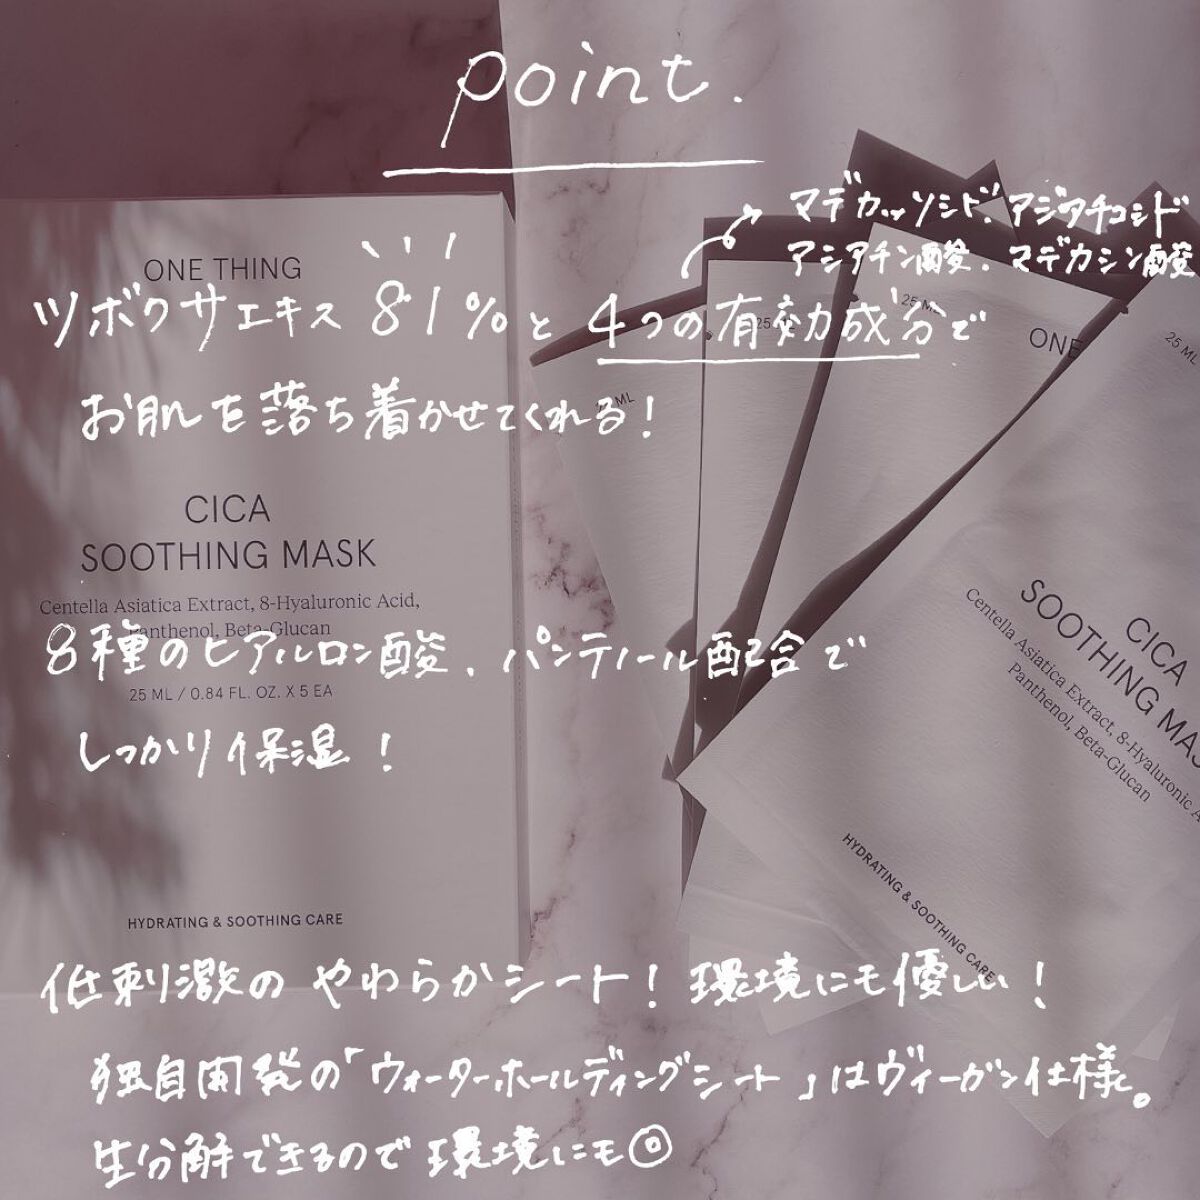 point.
マデカッソシド、アジアチコシド
アシアチン酸、マデカシン酸
ツボクサエキス81%と4つの有効成分で
お肌を落ち着かせてくれる!
8種のヒアルロン酸、パンテノール配合で
しっかり保湿!
低刺激のやわらかシート!環境にも優しい!
独自開発の「ウォーターホールディングシート」はヴィーガン仕様。
生分解できるので環境にも◎
ONE THING
CICA
SOOTHING MASK
Centella Asiatica Extract, 8-Hyaluronic Acid,
Panthenol, Beta-Glucan
25 ML / 0.84 FL. OZ. X 5 EA
HYDRATING & SOOTHING CARE
25 ML
25 ML
ONE
25 ML
CICA
SOOTHING MAS
Centella Asiatica Extract, 8-Hyaluronic A
Panthenol, Beta-Glucan
HYDRATING & SOOTHING CARE